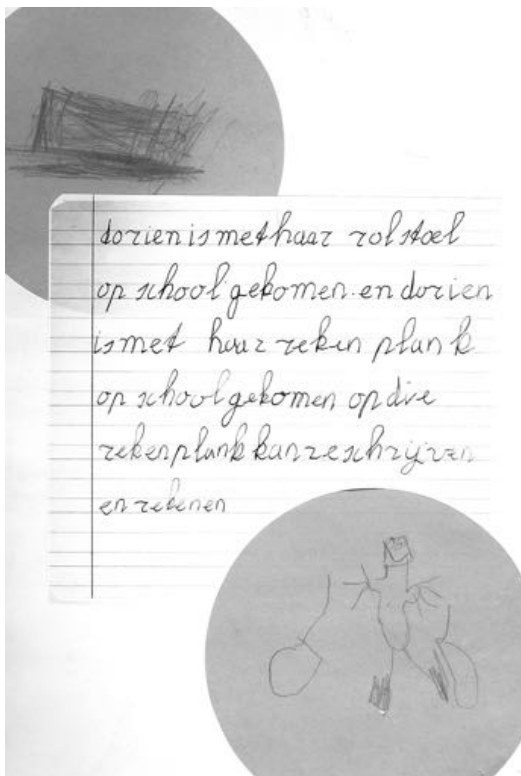 dorien is met haar rolstoel
op school gekomen. en dorien
is met haar reken plank
op school gekomen op die
rekenplank kan ze schrijven
en rekenen